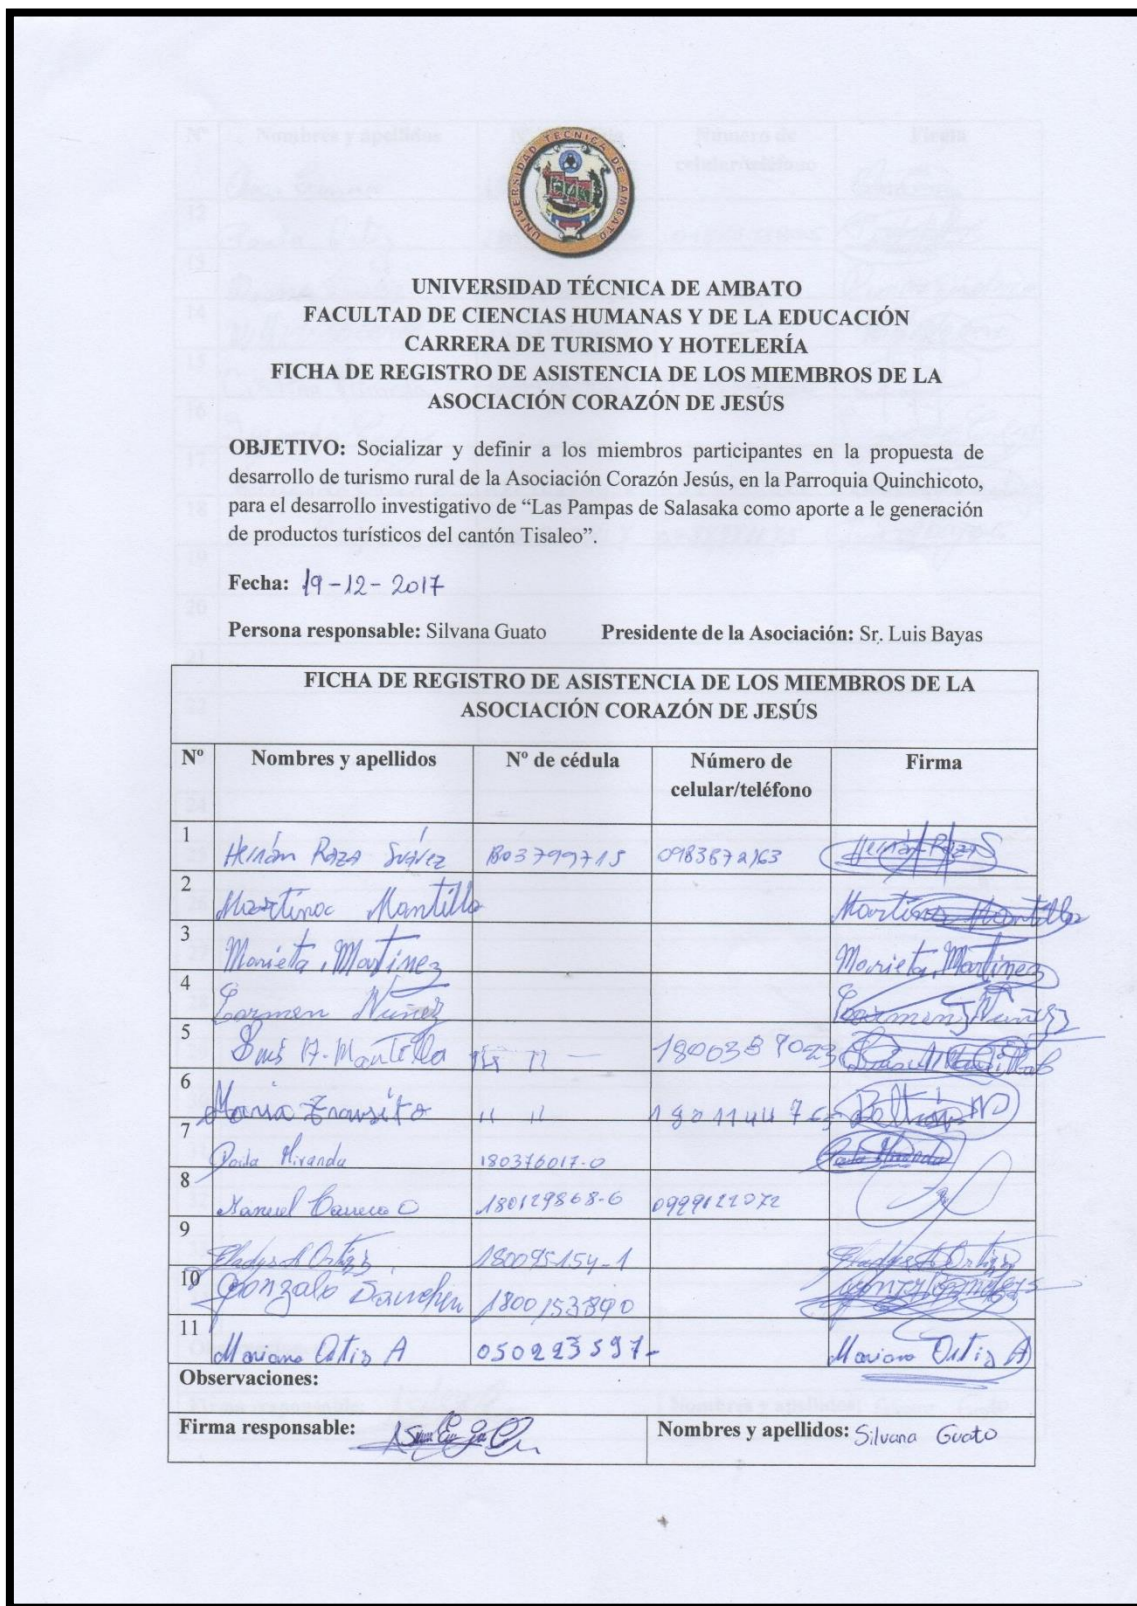 UNIVERSIDAD TECNICA DE AMBATO
UNIVERSIDAD TÉCNICA DE AMBATO
FACULTAD DE CIENCIAS HUMANAS Y DE LA EDUCACIÓN
CARRERA DE TURISMO Y HOTELERÍA
FICHA DE REGISTRO DE ASISTENCIA DE LOS MIEMBROS DE LA
ASOCIACIÓN CORAZÓN DE JESÚS
OBJETIVO: Socializar y definir a los miembros participantes en la propuesta de
desarrollo de turismo rural de la Asociación Corazón Jesús, en la Parroquia Quinchicoto,
para el desarrollo investigativo de “Las Pampas de Salasaka como aporte a le generación
de productos turísticos del cantón Tisaleo”.
Fecha: 19-12-2017
Persona responsable: Silvana Guato Presidente de la Asociación: Sr. Luis Bayas
FICHA DE REGISTRO DE ASISTENCIA DE LOS MIEMBROS DE LA
ASOCIACIÓN CORAZÓN DE JESÚS
Nº Nombres y apellidos Nº de cédula Número de celular/teléfono Firma
1 Hernán Raza Suárez Hernán Raza S
2 Martina Mantilla Martina Mantilla
3 Marieta, Martinez Marieta, Martinez
4 Carmen Nuñez Carmen Nuñez
5 Luis A. Mantilla
6 Maria Transito " " Beltrán
7 Miranda 180376017-0
8 Manuel 180129868-6 0999122072
9 Ortiz 180095154-1 Ortiz
10 Gonzalo Sanchez 1800153890
11 Mariano Ortiz A 050223597- Mariano Ortiz A
Observaciones:
Firma responsable: Nombres y apellidos: Silvana Guato